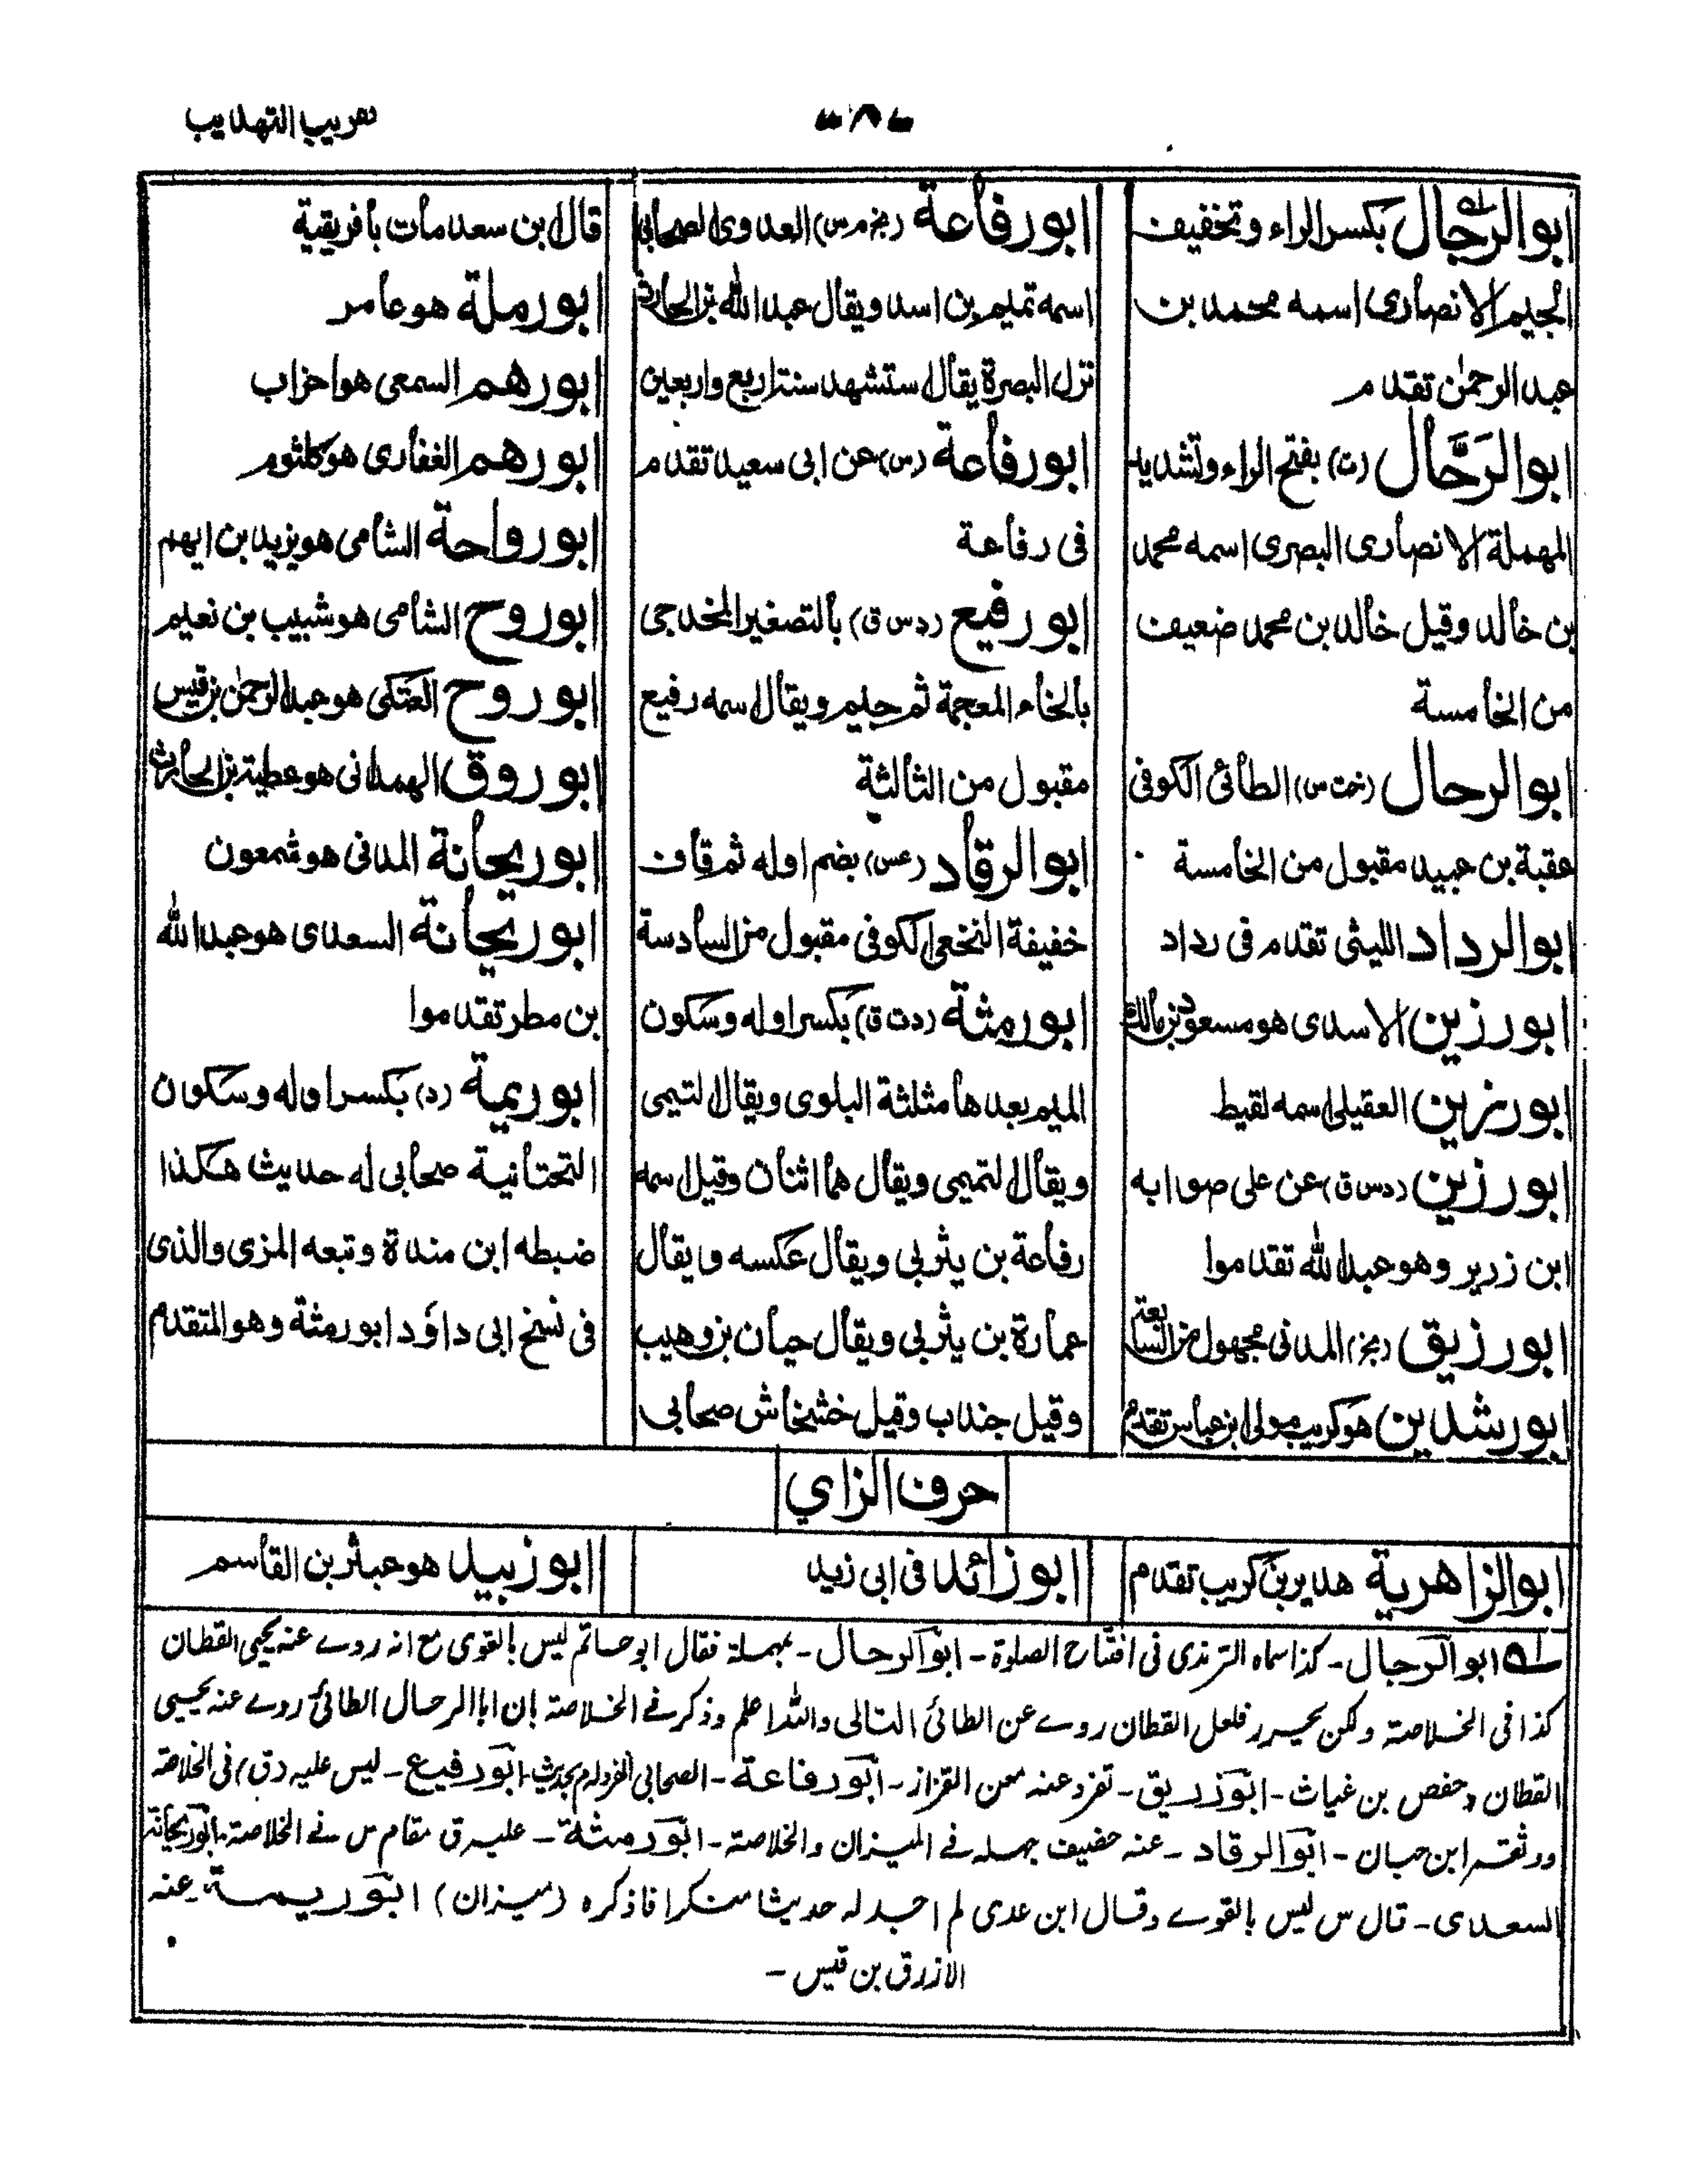 تقريب التهذيب
ابو الرجال بكسر الراء وتخفيف
الجيم الانصاري اسمه محمد بن
عبد الرحمن تقدم
ابو الرَحَّال (ت) بفتح الراء وتشديد
المهملة الانصاري البصري اسمه محمد
بن خالد وقيل خالد بن محمد ضعيف
من الخامسة
ابو الرحال (خت س) الطائي الكوفي
عقبة بن عبيد مقبول من الخامسة
ابو الرداد الليثي تقدم في رداد
ابو رزين الاسدي هو مسعود بن مالك
ابو رزين العقيلي اسمه لقيط
ابو رزين (د س ق) عن علي صوابه
ابن زرير وهو عبد الله تقدموا
ابو رزيق (بخ) المدني مجهول من السابعة
ابو رشدين هو كريب مولى ابن عباس تقدم
ابو رفاعة (بخ م س) العدوي الصحابي
اسمه تميم بن اسد ويقال عبد الله بن الحارث
نزل البصرة يقال استشهد سنة اربع واربعين
ابو رفاعة (س) عن ابي سعيد تقدم
في رفاعة
ابو رفيع (د س ق) بالتصغير المخدجي
بالخاء المعجمة ثم جيم ويقال اسمه رفيع
مقبول من الثالثة
ابو الرقاد (عس) بضم اوله ثم قاف
خفيفة النخعي الكوفي مقبول من السادسة
ابو رمثة (د ت ق) بكسر اوله وسكون
الميم بعدها مثلثة البلوي ويقال التيمي
ويقال التميمي ويقال هما اثنان وقيل اسمه
رفاعة بن يثربي ويقال عكسه ويقال
عمارة بن يثربي ويقال حيان بن وهيب
وقيل جندب وقيل خشخاش صحابي
قال ابن سعد مات بافريقية
ابو رملة هو عامر
ابو رهم السمعي هو احزاب
ابو رهم الغفاري هو كلثوم
ابو رواحة الشامي هو يزيد بن ايهم
ابو روح الشامي هو شبيب بن نعيم
ابو روح العتكي هو عبد الرحمن بن قيس
ابو روق الهمداني هو عطية بن الحارث
ابو ريحانة المدني هو شمعون
ابو ريحانة السعدي هو عبد الله
بن مطر تقدموا
ابو ريمة (د) بكسر اوله وسكون
التحتانية صحابي له حديث هكذا
ضبطه ابن مندة وتبعه المزي والذي
في نسخ ابي داؤد ابو رمثة وهو المتقدم
حرف الزاي
ابو الزاهرية هدير بن كريب تقدم
ابو زائد في ابي زيد
ابو زبيد هو عبثر بن القاسم
له ابو الرجال - كذا سماه الترمذي في افتتاح الصلوة - ابو الرحال - بمهملة فقال ابو حاتم ليس بالقوي مع انه روے عنه يحيى القطان
كذا في الخلاصة ولكن يحرر فلعل القطان روے عن الطائي التالي والله اعلم وذكر فے الخلاصة إن ابا الرحال الطائي روے عنه يحيى
القطان وحفص بن غياث - ابو زريق - تفرد عنه معن القزاز - ابو رفاعة - الصحابي انفرد له م بحديث - ابو رفيع - ليس عليه (د ق) في الخلاصة
ووثقه ابن حبان - ابو الرقاد - عنه حفيف جهله فے الميزان والخلاصة - ابو رمثة - عليه ق مقام س فے الخلاصة - ابو ريحانة
السعدي - قال س ليس بالقوے وقال ابن عدي لم اجد له حديثا منكرا فاذكره (ميزان) ابو ريمة - عنه
الازرق بن قيس -